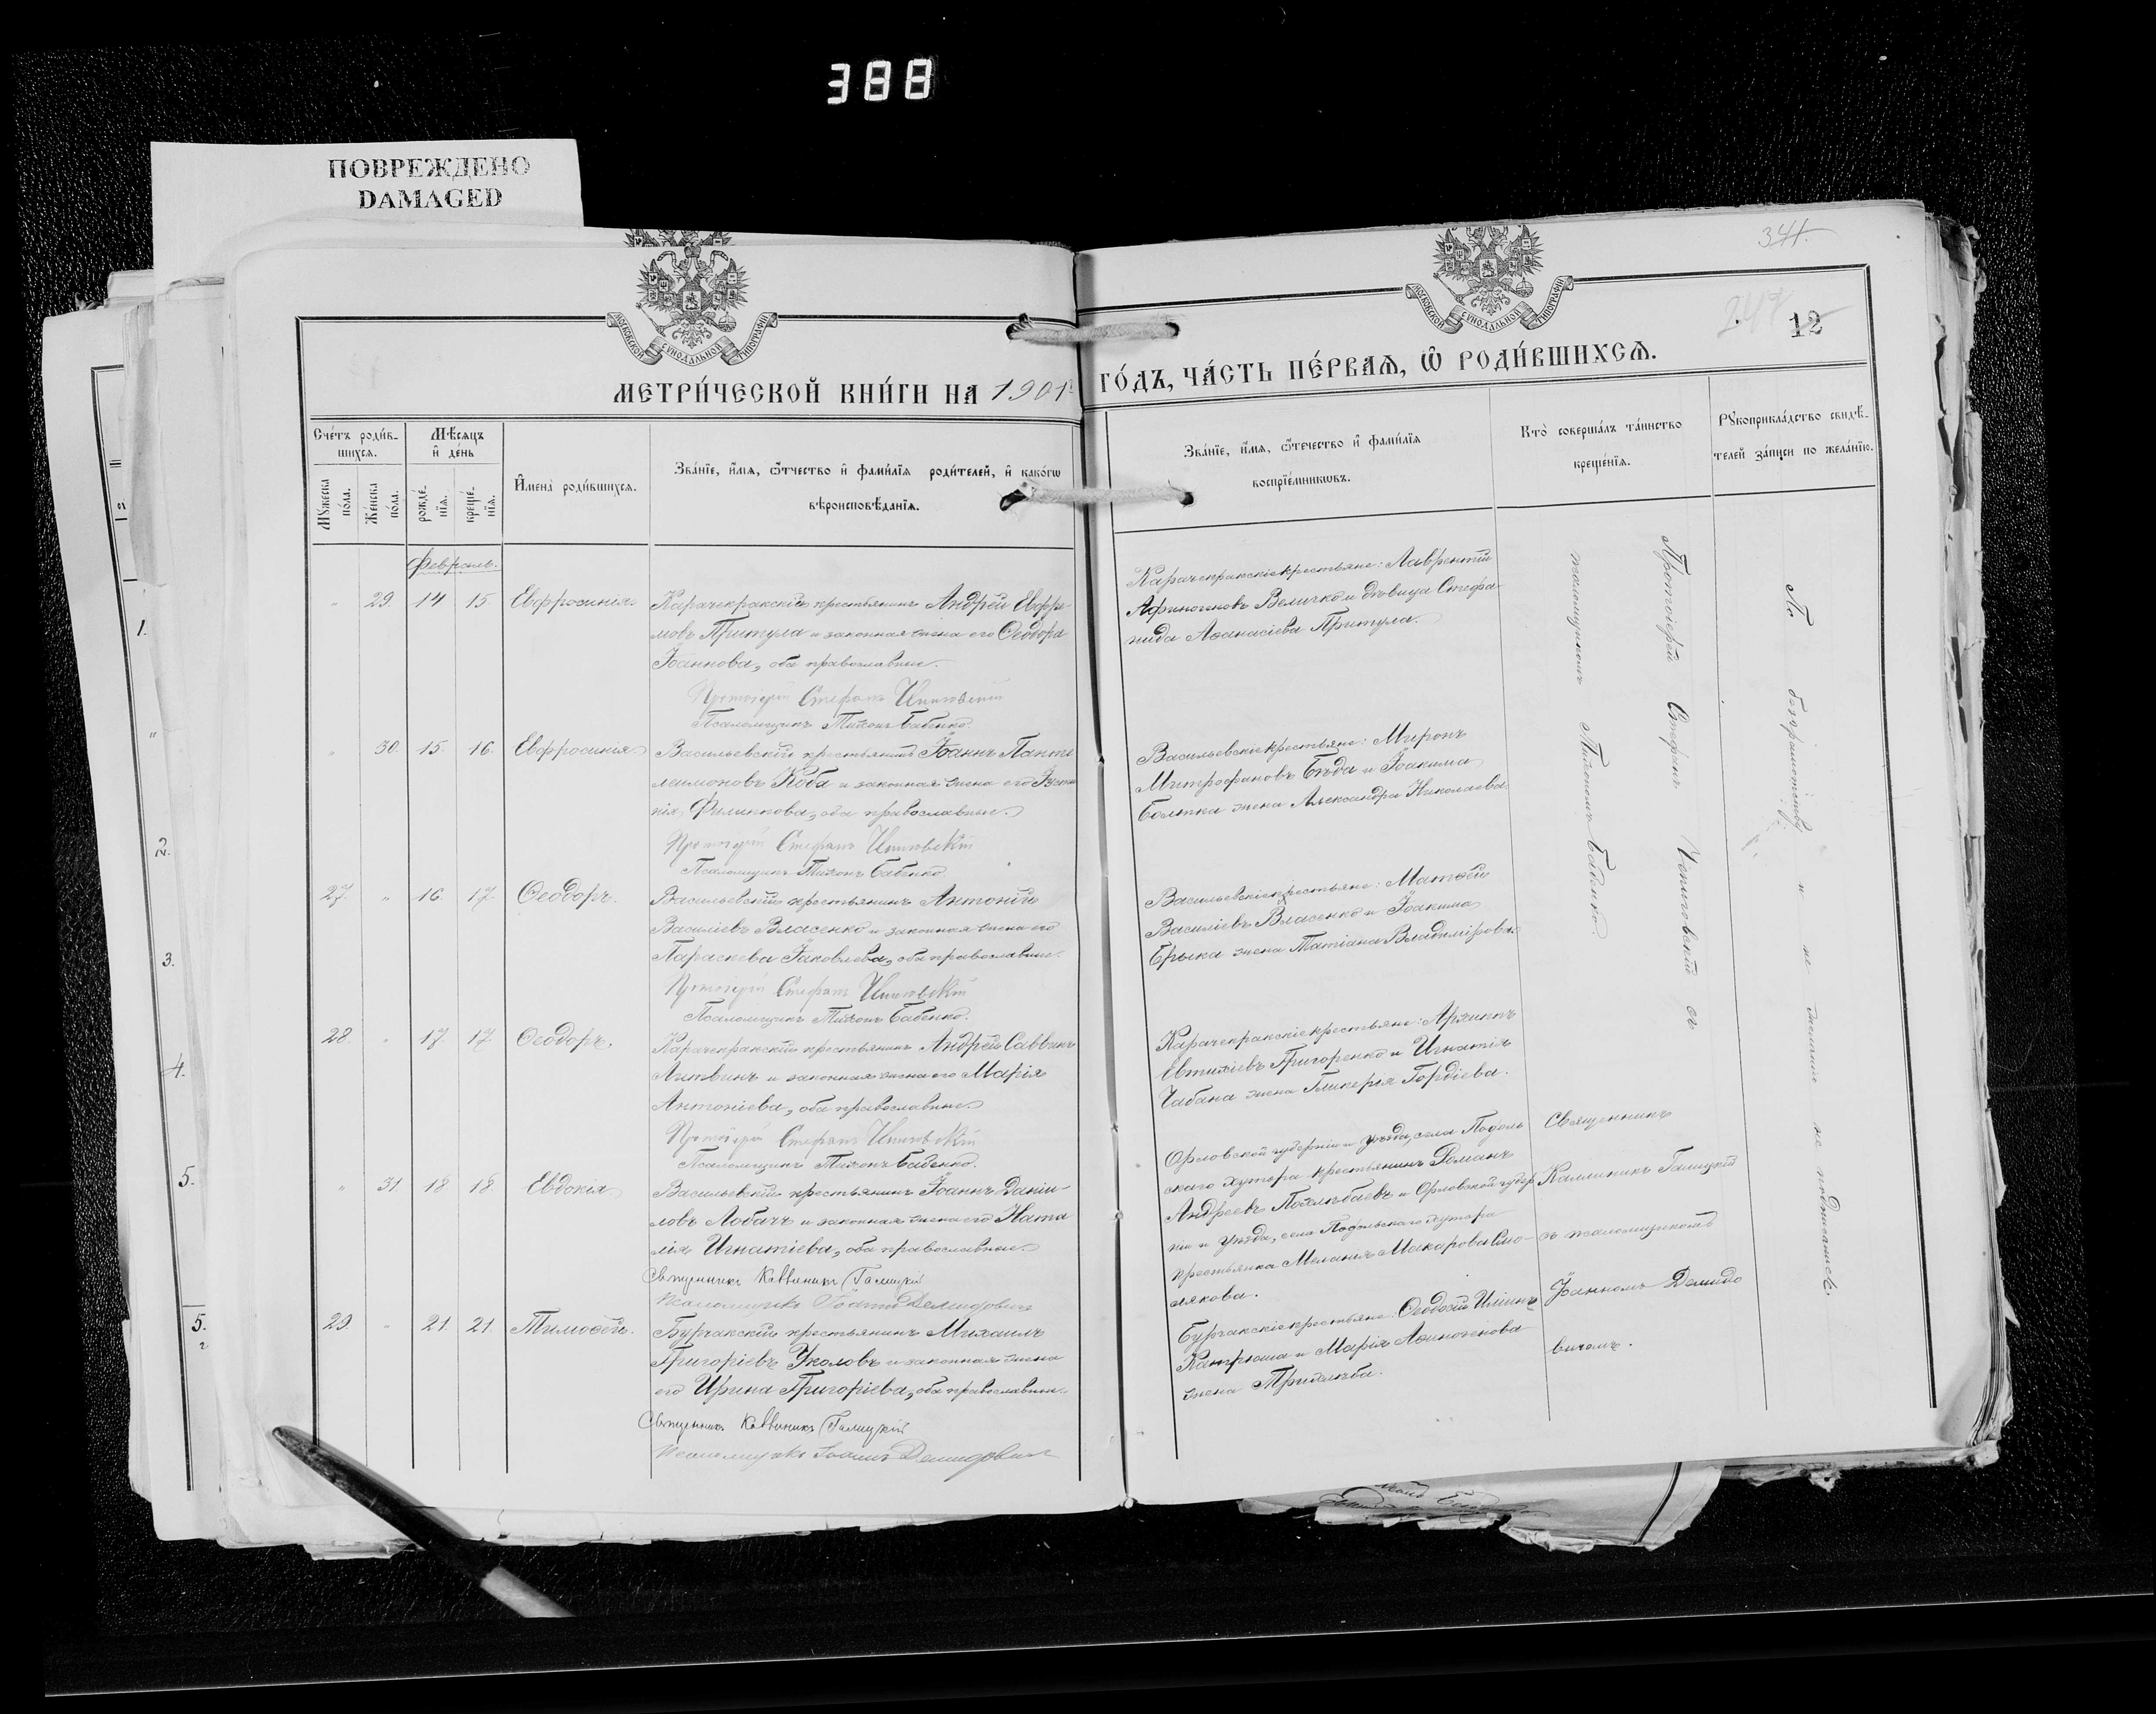 388
ПОВРЕЖДЕНО
DAMAGED
341.
247
12
МОСКОВСКОЙ СѴНОДАЛЬНОЙ ТИПОГРАФІИ
МОСКОВСКОЙ СѴНОДАЛЬНОЙ ТИПОГРАФІИ
МЕТРИ́ЧЕСКОЙ КНИ́ГИ НА 1901 ГО́ДЪ, ЧА́СТЬ ПЕ́РВАѦ, Ѿ РОДИ́ВШИХСѦ.
Сче́тъ роди́в-
шихсѧ.
Мꙋжеска
по́ла.
Же́нска
по́ла.
Мѣ́сѧцъ
и҆ де́нь
рожде́-
нїѧ.
креще́-
нїѧ.
И҆мена̀ роди́вшихсѧ.
Зва́нїе, и҆́мѧ, ѻ҆́тчество и҆ фами́лїѧ роди́телей, и҆ како́гѡ
вѣроисповѣ́данїѧ.
Зва́нїе, и҆́мѧ, ѻ҆те́чество и҆ фами́лїѧ
воспрїе́мникѡвъ.
Кто̀ соверша́лъ та́инство
креще́нїѧ.
Рꙋкоприкла́дство свидѣ́-
телей за́писи по жела́нїю.
Февраль.
" 29. 14 15. Евфросинія
Карачекракскій крестьянинъ Андрей Евфре-
мовъ Притула и законная жена его Ѳеодора
Іоаннова, оба православные.
Протоіерей Стефанъ
Псаломщикъ Тихонъ Бабенко.
Карачекракскіе крестьяне: Лаврентій
Афиногеновъ Величко и дѣвица Стефа-
нида Аѳанасіева Притула.
" 30. 15. 16. Евфросинія
Васильевскій крестьянинъ Іоаннъ Панте
леимоновъ Коба и законная жена его
Филиппова, оба православные.
Протоіерей Стефанъ
Псаломщикъ Тихонъ Бабенко.
Васильевскіе крестьяне: Миронъ
Митрофановъ Бѣда и Іоакима
жена Александра Николаева.
27. " 16. 17. Ѳеодоръ.
Васильевскій крестьянинъ Антоній
Василіевъ Власенко и законная жена его
Параскева Іаковлева, оба православные.
Протоіерей Стефанъ
Псаломщикъ Тихонъ Бабенко.
Васильевскіе крестьяне: Матѳей
Василіевъ Власенко и Іоакима
жена Татіана Владимірова.
28. " 17. 17. Ѳеодоръ.
Карачекракскій крестьянинъ Андрей Саввинъ
Литвинъ и законная жена его Марія
Антоніева, оба православные.
Протоіерей Стефанъ
Псаломщикъ Тихонъ Бабенко.
Карачекракскіе крестьяне: Архипъ
Евтихіевъ Григоренко и Игнатія
Чабана жена Гликерія Гордіева.
Протоіерей Стефанъ съ
псаломщикомъ Тихономъ Бабенко.
По безграмотству и не желанію не подписались.
" 31. 18 18. Евдокія
Васильевскій крестьянинъ Іоаннъ Даніи-
ловъ Лобачъ и законная жена его Ната
лія Игнатіева, оба православные.
Священникъ Каллиникъ Галицкій
Псаломщикъ Іоаннъ Демидовичъ
Орловской губерніи и уѣзда, села Подоль
скаго хутора крестьянинъ Романъ
Андреевъ и Орловской губер
ніи и уѣзда, села Подольскаго хутора
крестьянка Меланія Макарова
лякова.
Священникъ
Каллиникъ Галицкій
съ псаломщикомъ
Іоанномъ Демидо
вичемъ.
29. " 21. 21. Тимоѳей.
Бурчакскій крестьянинъ Михаилъ
Григоріевъ Уколовъ и законная жена
его Ирина Григоріева, оба православные.
Священникъ Каллиникъ Галицкій
Псаломщикъ Іоаннъ Демидовичъ
Бурчакскіе крестьяне: Ѳеодосій Иліинъ
и Марія Аѳиногенова
жена
1.
2.
3.
4.
5.
5.